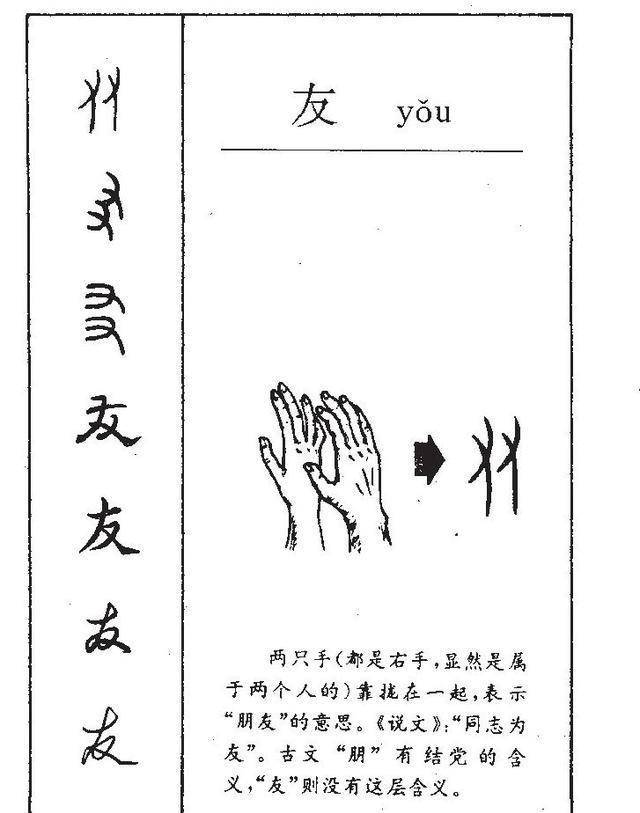 友 yǒu
友
友
友
友
两只手(都是右手,显然是属
于两个人的)靠拢在一起,表示
“朋友”的意思。《说文》:“同志为
友”。古文“朋”有结党的含
义,“友”则没有这层含义。